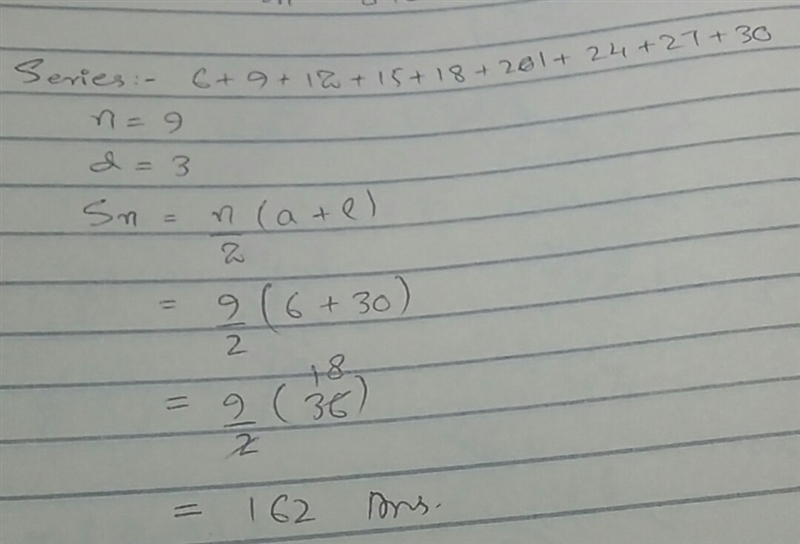 Series:- 6+9+12+15+18+21+24+27+30
n = 9
d = 3
Sn = n/2 (a+l)
= 9/2 (6+30)
= 9/2 (36) 18
= 162 Ans.